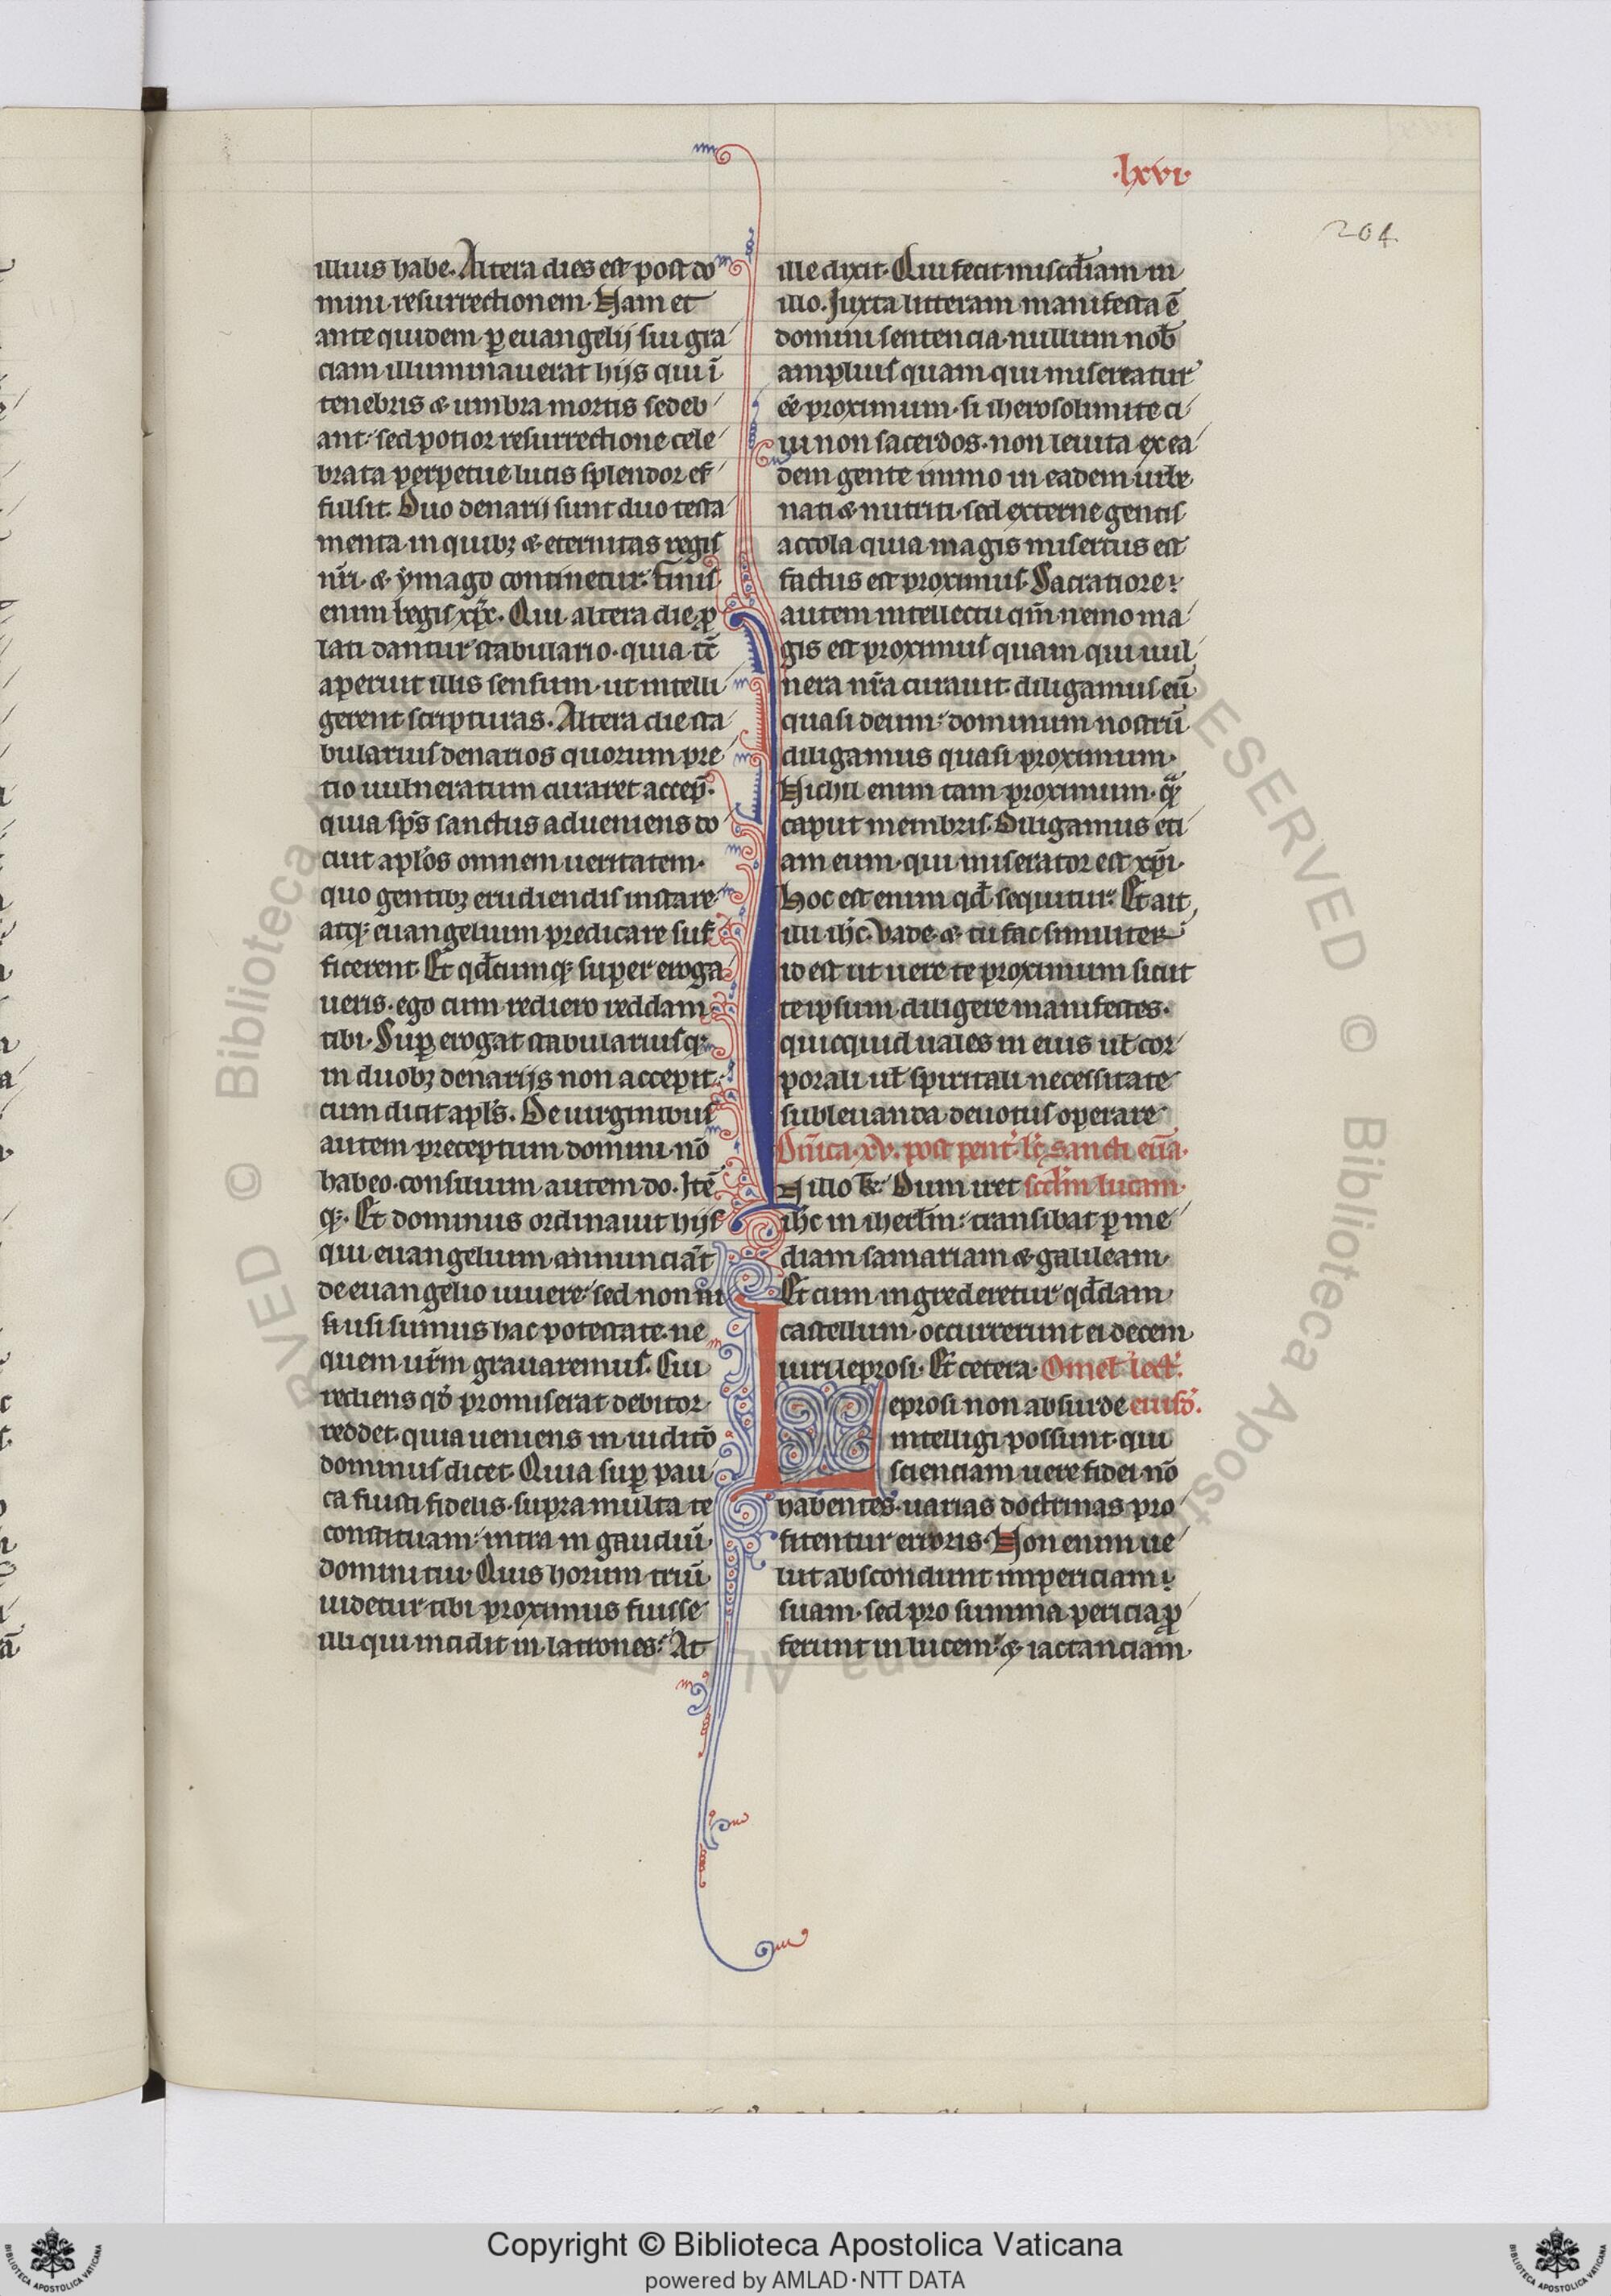 .lxvi.
204
illius habe. Altera dies est post do
mini resurrectionem. Nam et
ante quidem ꝑ euangelij sui gra
ciam illuminauerat hijs qui ī
tenebris ⁊ umbra mortis sedeb
ant: sed potior resurrectione cele
brata perpetue lucis splendor ef
fulsit. Duo denarij sunt duo testa
menta in quibꝫ ⁊ eternitas regis
nr̄i ⁊ ymago continetur. finis
enim legis xp̄c. Qui altera die ꝓ
lati dantur stabulario. quia tc̄
aperuit illis sensum ut intelli
gerent scripturas. Altera die sta
bularius denarios quorum pre
tio uulneratum curaret accep̄.
quia sp̄s sanctus adueniens do
cuit apl̄os omnem ueritatem.
quo gentibꝫ erudiendis instare
atqꝫ euangelium predicare suf
ficerent. Et qd̄cumqꝫ super eroga
ueris. ego cum rediero reddam
tibi. Suꝑ erogat stabularius qꝫ
in duobꝫ denarijs non accepit.
cum dicit apl̄s. De uirginibus
autem preceptum domini nō
habeo. consilium autem do. Itē
qꝫ. Et dominus ordinauit hijs
qui euangelium annunciāt
de euangelio uiuere: sed non in
si usi sumus hac potestate. ne
quem ur̄m grauaremus. Cui
rediens qd̄ promiserat debitor
reddet. quia ueniens in iudicō
dominus dicet. Quia suꝑ pau
ca fuisti fidelis. supra multa te
constituam: intra in gaudiū
domini tui. Quis horum triū
uidetur tibi proximus fuisse
illi qui incidit in latrones: At
ille dixit. Qui fecit miscd̄iam in
illo. Iuxta litteram manifesta ē
domini sentencia. nullum nob̄
amplius quam qui misereatur
eē proximum. si iherosolimite ci
ui non sacerdos. non leuita ex ea
dem gente immo in eadem urbe
nati ⁊ nutriti. sed externe gentis
accola quia magis misertus est
factus est proximus. Sacratiore
autem intellectu qm̄ nemo ma
gis est proximus quam qui uul
nera nr̄a curauit. diligamus eū
quasi deum: dominum nostrū
diligamus quasi proximum.
Nichil enim tam proximum. qͣ̄
caput membris. Diligamus eti
am eum. qui miserator est xp̄i.
hoc est enim qd̄ sequitur: Et ait
illi ih̄c. Vade ⁊ tu fac similiter
id est ut uere te proximum sicut
te ipsum diligere manifestes.
quicquid uales in eius ul̄ cor
porali ul̄ spiritali necessitate
subleuanda deuotus operare
Dn̄ica .xv. post pent̄. lc̄. sancti eūa.
IN illo t̄. Dum iret scd̄m lucam.
ih̄c in iherl̄m: transibat ꝑ me
diam samariam ⁊ galileam.
Et cum ingrederetur qd̄dam
castellum. occurrerunt ei decem
uiri leprosi. Et cetera. Omel̄. lect̄.
Leprosi non absurde eiusd̄.
intelligi possunt. qui
scienciam uere fidei nō
habentes. uarias doctrinas pro
fitentur erroris. Non enim ue
lut abscondunt impericiam
suam. sed pro summa pericia ꝓ
ferunt in lucem: ⁊ iactanciam
Copyright © Biblioteca Apostolica Vaticana
powered by AMLAD·NTT DATA